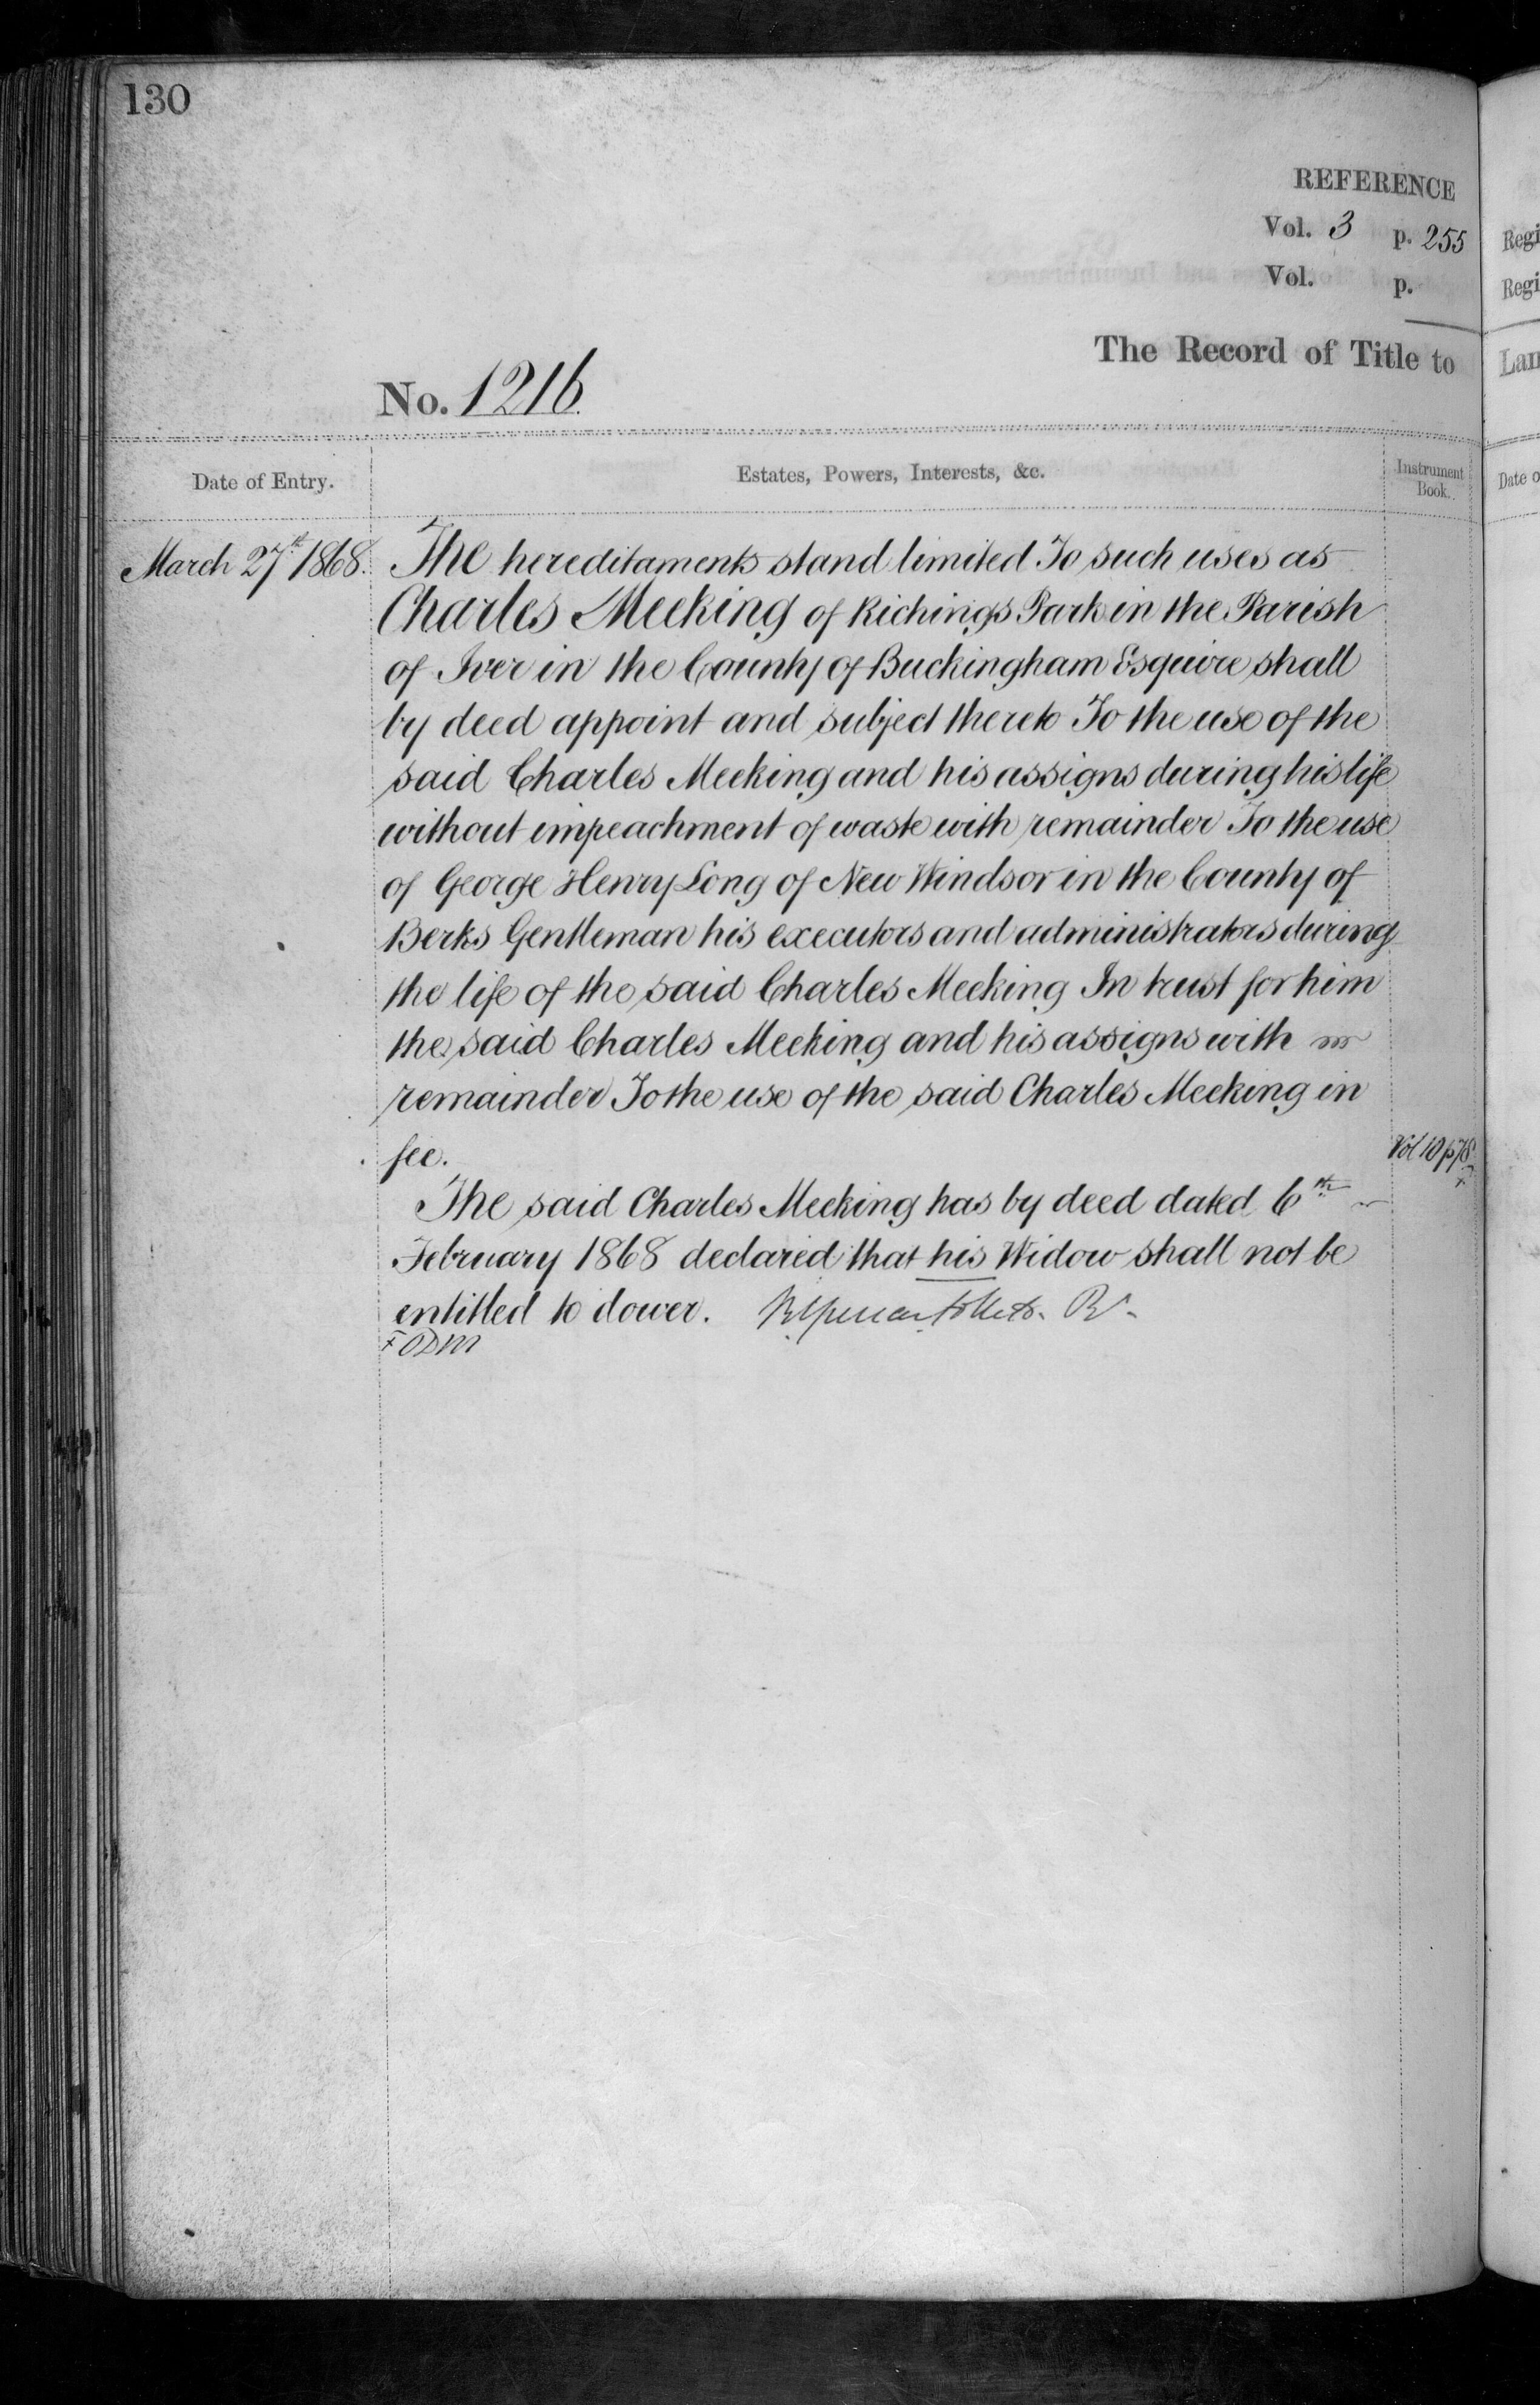 130
REFERENCE
Vol. 3 p. 255
Vol. p.
The Record of Title to
No. 1216
Date of Entry. Estates, Powers, Interests, &c. Instrument Book.
March 27th 1868. The hereditaments stand limited To such uses as
Charles Meeking of Richings Park in the Parish
of Iver in the County of Buckingham Esquire shall
by deed appoint and subject thereto To the use of the
said Charles Meeking and his assigns during his life
without impeachment of waste with remainder To the use
of George Henry Long of New Windsor in the County of
Berks Gentleman his executors and administrators during
the life of the said Charles Meeking In trust for him
the said Charles Meeking and his assigns with
remainder To the use of the said Charles Meeking in
fee. Vol 10 p 78
The said Charles Meeking has by deed dated 6th
February 1868 declared that his Widow shall not be
entitled to dower.
Regi
Regi
Lan
Date o